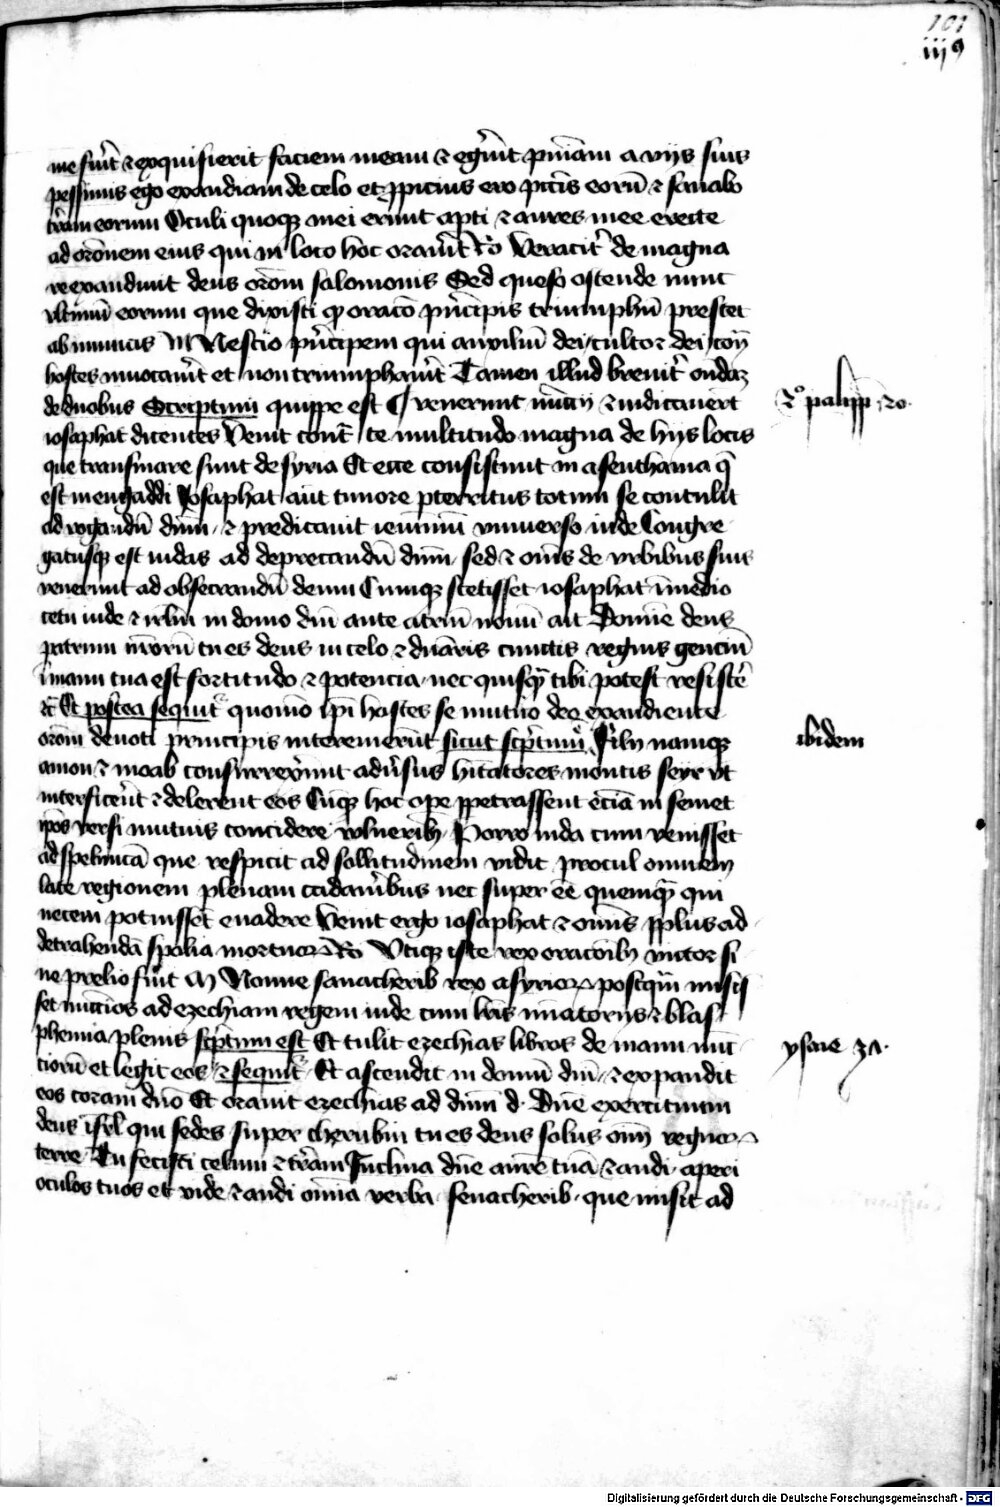 101
iij9
me fuerit & exquisierit faciem meam & egerint pniam a viis suis
pessimis ego exaudiam de celo et ppicius ero pctis eorū & sanabo
tram eorum Oculi quoqz mei erunt apti & aures mee erecte
ad oronem eius qui in loco hoc orauit Rō Veracit de magna
re exaudiuit deus orom salomonis Sed queso ostende nunc
vltimū eorum que dixisti qp oracō pncipis triumphū prestet
ab inimicis M Nescio pncipem qui auxiliū dei cultor dei cont
hostes inuocauit et non triumphauit Tamen illud breuit ondaz
de duobus Scriptum quippe est venerunt nūcij & indicauert
iosaphat dicentes Venit contr te multitudo magna de hijs locis
que transmare sunt de syria Et ecce consistunt in asenthama q
est in engaddi Iosaphat aut timore pterritus totum se contulit
ad rogandū dnm & predicauit ieiuniū vniuerso iude Congre
gatusqz est iudas ad deprecandū dnm sed & oms de vrbibus suis
venerunt ad obsecrandū deum Cumqz stetisset iosaphat i medio
cetu iude & irlm in domo dni ante atriū nouū ait Domine deus
patrum nrorū tu es deus in celo & dnaris cunctis regnis genciū
i manu tua est fortitudo & potencia nec quisq tibi potest resiste
&c Et postea sequit quomō ipi hostes se mutuo deo exaudiente
orom deuoti principis interemerūt sicut scptum Filij namqz
amon & moab consurrexerunt adusus hitatores montis seyr vt
interficeret & delerent eos Cūqz hoc ope ppetrassent eciā in semet
ipos versi mutuis concidere vulneribz Porro iuda cum venisset
ad speluncā que respicit ad sollitudinem vidit procul omnem
late regionem plenam cadaueribus nec super ee quemq qui
necem potuisset euadere Venit ergo iosaphat & omnis pplus ad
detrahendā spolia mortuor Rō Vtiqz iste rex oracoibz victor si
ne prelio fuit M Nonne sanacherib rex asyrior postqm misis
set nuncios ad ezechiam regem iude cum lris minatorijs & blas
phemia plenis scptum est Et tulit ezechias libros de manu nūc
ciorū et legit eos & sequit Et ascendit in domū dni & expandit
eos coram dno Et orauit ezechias ad dnm d. Dne exercituum
deus isrl qui sedes super cherubin tu es deus solus oim regnor
terre Tu fecisti celum & tram Inclina dne aure tuā & audi aperi
oculos tuos et vide & audi omia verba senacherib que misit ad
2o palipp 20.
ibidem
ysaie 37.
Digitalisierung gefördert durch die Deutsche Forschungsgemeinschaft - DFG